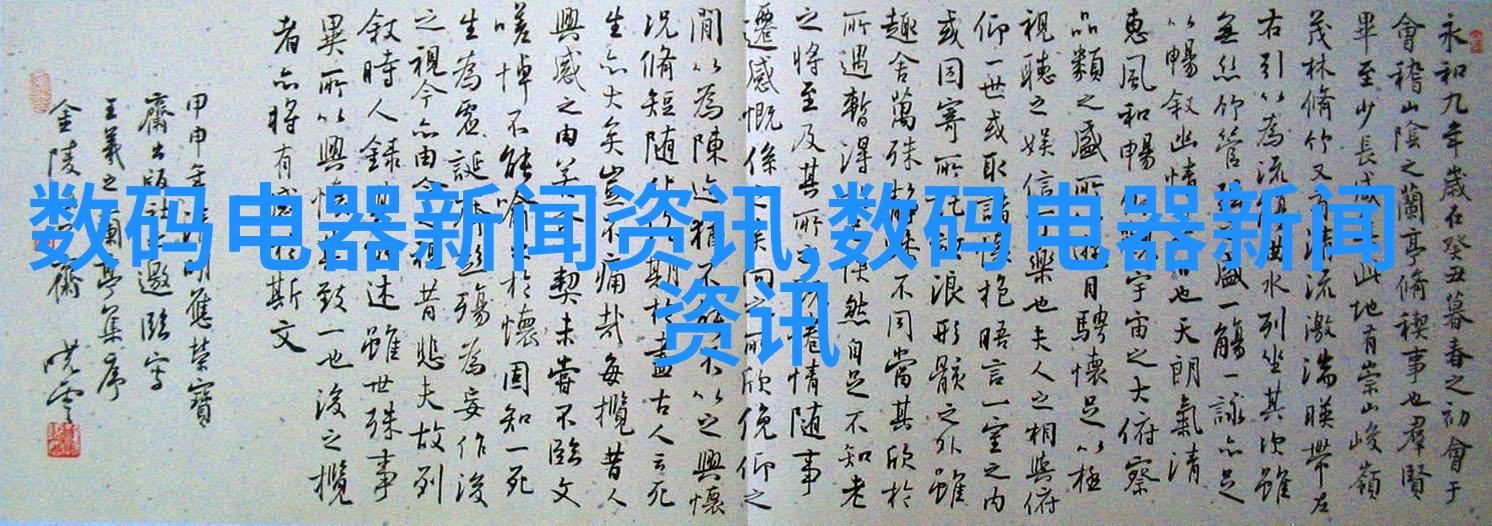 数码电器新闻资讯,数码电器新闻
资讯
永和九年歲在癸丑暮春之初會于
會稽山陰之蘭亭脩稧事也群賢
畢至少長咸集此地有崇山峻嶺
茂林脩竹又有清流激湍暎帶左
右引以為流觴曲水列坐其次雖
無絲竹管弦之盛一觴一詠亦足
以暢叙幽情是日也天朗氣清
惠風和暢仰觀宇宙之大俯察
品類之盛所以遊目騁懷足以極
視聽之娛信可樂也夫人之相與俯
仰一世或取諸懷抱晤言一室之內
或因寄所託放浪形骸之外雖
趣舍萬殊靜躁不同當其欣於
所遇暫得於己快然自足不知老
之將至及其所之既惓情隨事
遷感慨係之矣向之所欣俛仰之
間以為陳迹猶不能不以之興懷
況脩短隨化終期於盡古人云死
生亦大矣豈不痛哉每攬昔人
興感之由若合一契未嘗不臨文
嗟悼不能喻之於懷固知一死
生為虛誕齊彭殤為妄作後
之視今亦由今之視昔悲夫故列
叙時人錄其所述雖世殊事
異所以興懷其致一也後之攬
者亦將有感於斯文
甲申年清明應榮寶
齋出版社之邀臨寫
王羲之蘭亭集序
金陵 齋 曉雲